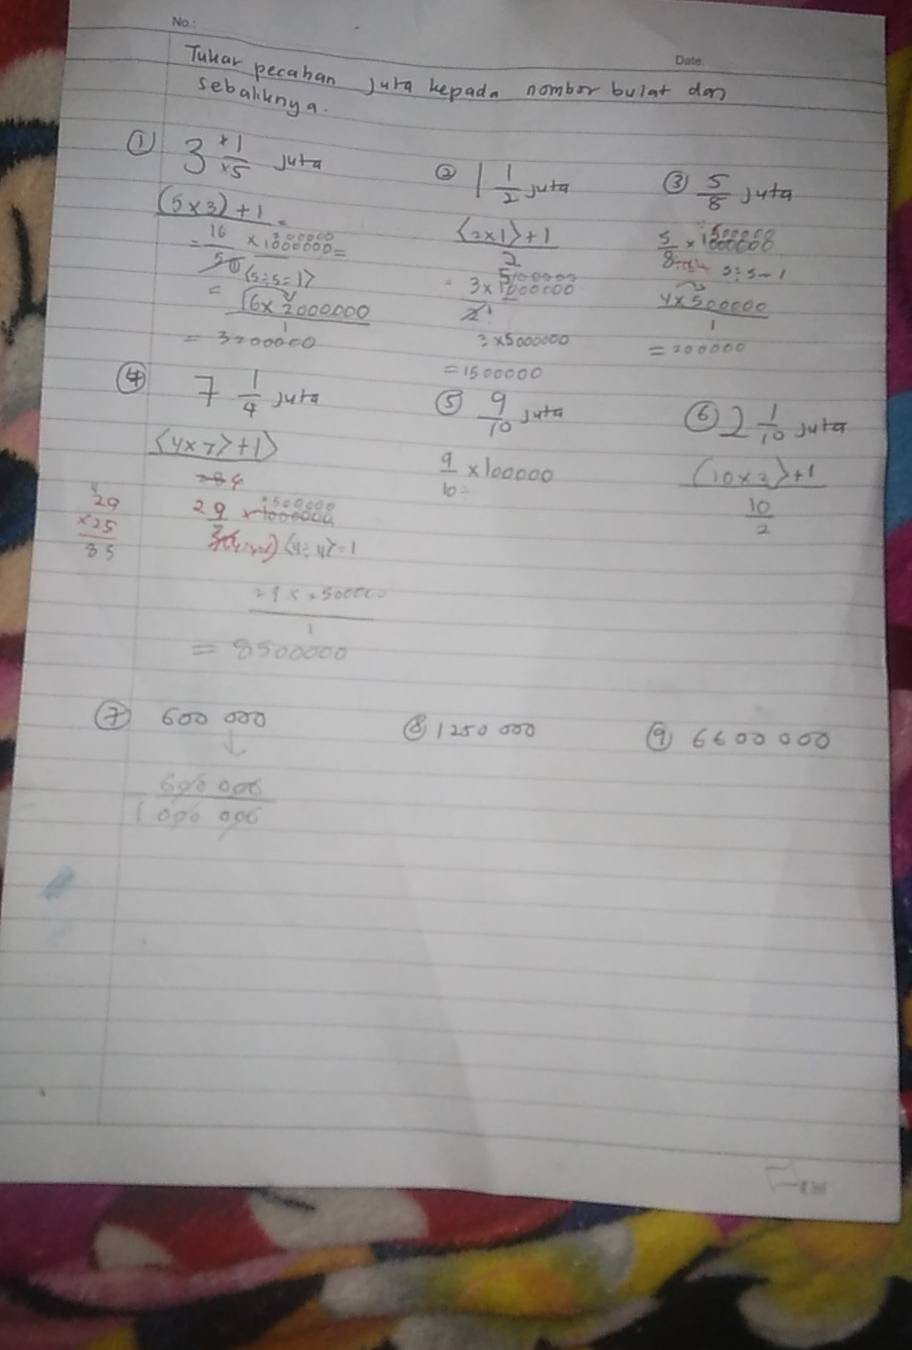 No.:
Date:
Tukar pecahan juta kepada nombor bulat dan
sebaliknya.
① 3 +1/×5 juta
(5×3)+1 =
= 16 × 1000000 =
(5÷5=1)
= 16 × 2000000
1
= 3200000
② 1 1/2 juta
(2×1)+1
2
= 3 × 1000000
3 × 5000000
= 1500000
③ 5/8 juta
5/8 × 1000000
4 × 500000
1
= 200000
④ 7 1/4 juta
(4×7)+1)
29
×25
85
29 × 1000000
(4÷4)=1
1
= 8500000
⑤ 9/10 juta
9/10 × 100000
⑥ 2 1/10 juta
(10×2)+1
10
2
⑦ 600 000
↓
600 000
1 000 000
⑧ 1250 000
⑨ 6600 000